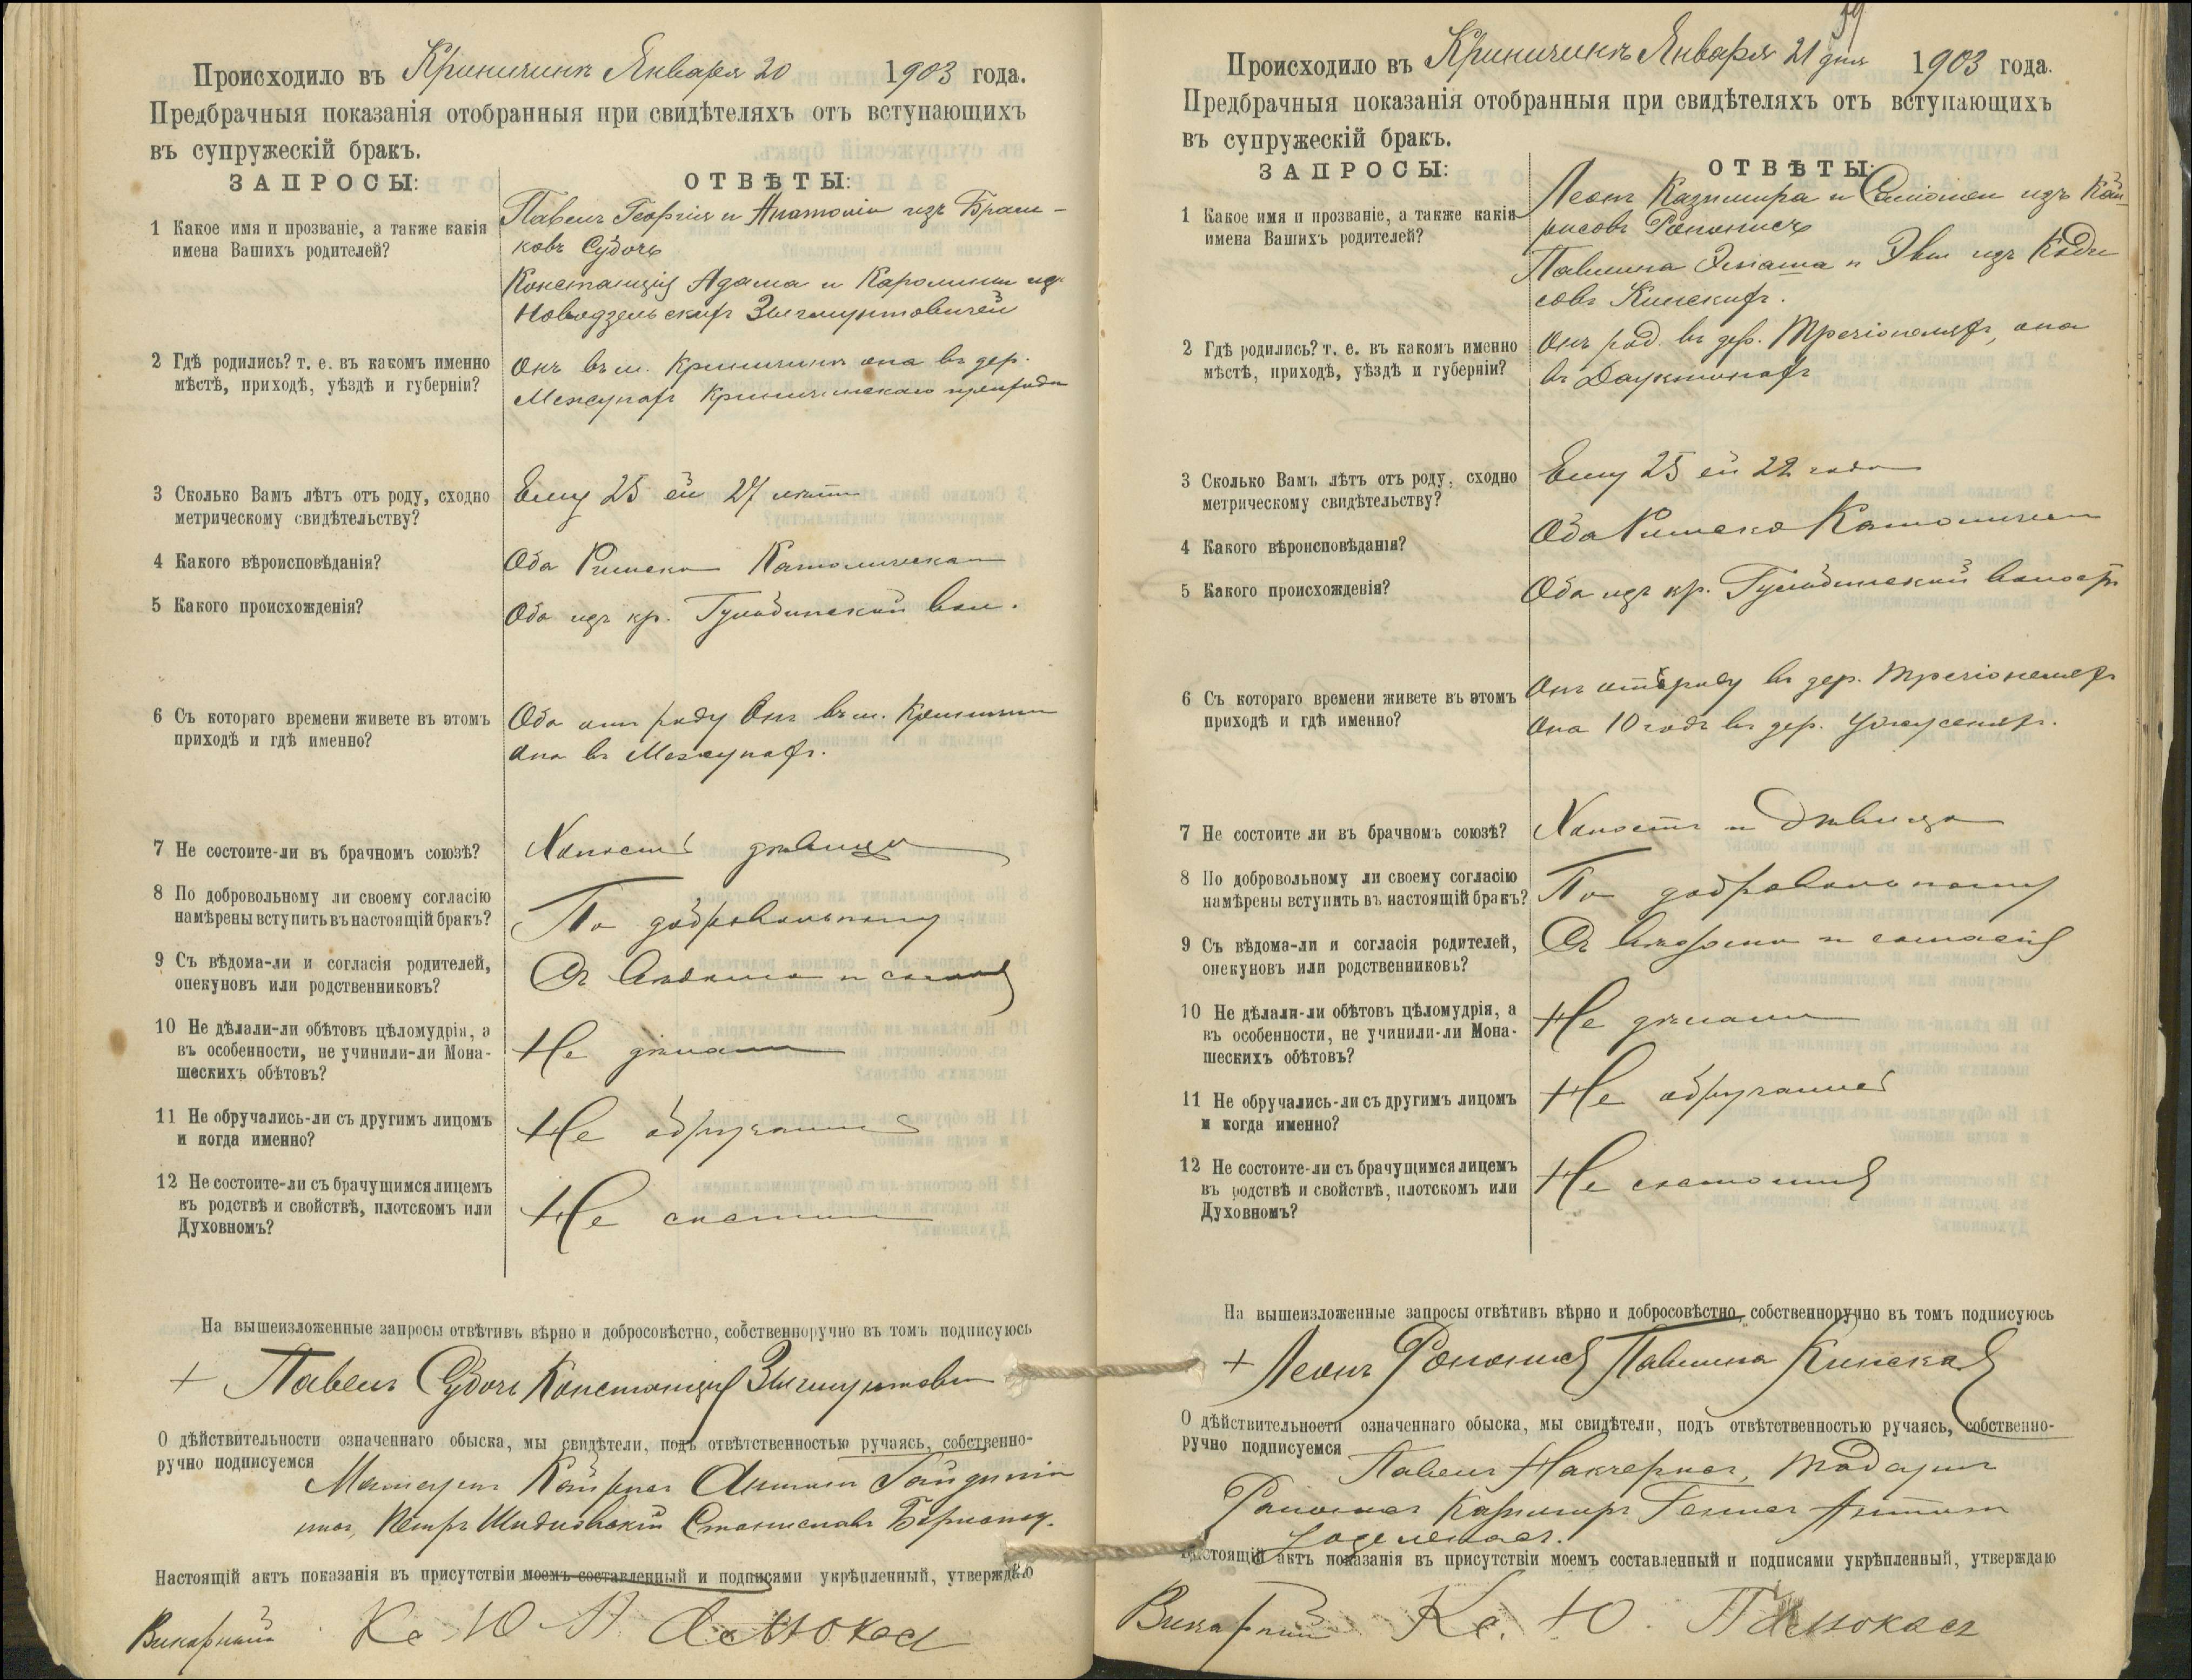 Происходило въ Криничинъ Января 20 1903 года.
Предбрачныя показанія отобранныя при свидѣтеляхъ отъ вступающихъ
въ супружескій бракъ.
ЗАПРОСЫ: ОТВѢТЫ:
1 Какое имя и прозваніе, а также какія
имена Вашихъ родителей?
Павелъ Георгія и Анатоліи изъ
Судочъ
Констанція Адама и Каролины изъ
2 Гдѣ родились? т. е. въ какомъ именно
мѣстѣ, приходѣ, уѣздѣ и губерніи?
Онъ въ м. Криничинѣ она въ дер.
Межунахъ Криничинскаго прихода
3 Сколько Вамъ лѣтъ отъ роду, сходно
метрическому свидѣтельству?
Ему 25 ей 27 лѣтъ
4 Какого вѣроисповѣданія?
Оба Римско Католическаго
5 Какого происхожденія?
Оба изъ кр. Гульбинской вол.
6 Съ котораго времени живете въ этомъ
приходѣ и гдѣ именно?
Оба отъ роду Онъ въ м. Криничинѣ
она въ Межунахъ.
7 Не состоите-ли въ брачномъ союзѣ?
Холостъ дѣвица
8 По добровольному ли своему согласію
намѣрены вступить въ настоящій бракъ?
По добровольному
9 Съ вѣдома-ли и согласія родителей,
опекуновъ или родственниковъ?
Съ вѣдома и согласія
10 Не дѣлали-ли обѣтовъ цѣломудрія, а
въ особенности, не учинили-ли Мона-
шескихъ обѣтовъ?
Не дѣлали
11 Не обручались-ли съ другимъ лицомъ
и когда именно?
Не обручались
12 Не состоите-ли съ брачущимся лицемъ
въ родствѣ и свойствѣ, плотскомъ или
Духовномъ?
Не состоимъ
На вышеизложенные запросы отвѣтивъ вѣрно и добросовѣстно, собственноручно въ томъ подписуюсь
+ Павелъ Судочъ Констанція
О дѣйствительности означеннаго обыска, мы свидѣтели, подъ отвѣтственностью ручаясь, собственно-
ручно подписуемся
Петръ Станиславъ
Настоящій актъ показанія въ присутствіи моемъ составленный и подписями укрѣпленный, утверждаю
Викарный Кс. Ю.
Происходило въ Криничинъ Января 21 дня 1903 года.
Предбрачныя показанія отобранныя при свидѣтеляхъ отъ вступающихъ
въ супружескій бракъ.
ЗАПРОСЫ: ОТВѢТЫ:
1 Какое имя и прозваніе, а также какія
имена Вашихъ родителей?
Леонъ Казимира и изъ
Павлина и Эвы изъ
Кинскихъ.
2 Гдѣ родились? т. е. въ какомъ именно
мѣстѣ, приходѣ, уѣздѣ и губерніи?
Онъ род. въ дер. она
въ
3 Сколько Вамъ лѣтъ отъ роду, сходно
метрическому свидѣтельству?
Ему 25 ей 22 года
4 Какого вѣроисповѣданія?
Оба Римско Католическ
5 Какого происхожденія?
Оба изъ кр. Гульбинской волости
6 Съ котораго времени живете въ этомъ
приходѣ и гдѣ именно?
Онъ отъ роду въ дер.
Она 10 годъ въ дер.
7 Не состоите ли въ брачномъ союзѣ?
Холостъ и дѣвица
8 По добровольному ли своему согласію
намѣрены вступить въ настоящій бракъ?
По добровольному
9 Съ вѣдома-ли и согласія родителей,
опекуновъ или родственниковъ?
Съ вѣдома и согласія
10 Не дѣлали-ли обѣтовъ цѣломудрія, а
въ особенности, не учинили-ли Мона-
шескихъ обѣтовъ?
Не дѣлали
11 Не обручались-ли съ другимъ лицомъ
и когда именно?
Не обручались
12 Не состоите-ли съ брачущимся лицемъ
въ родствѣ и свойствѣ, плотскомъ или
Духовномъ?
Не состоимъ
На вышеизложенные запросы отвѣтивъ вѣрно и добросовѣстно, собственноручно въ томъ подписуюсь
+ Леонъ Павлина Кинская
О дѣйствительности означеннаго обыска, мы свидѣтели, подъ отвѣтственностью ручаясь, собственно-
ручно подписуемся
Павелъ
Казимиръ
Настоящій актъ показанія въ присутствіи моемъ составленный и подписями укрѣпленный, утверждаю
Викарный Кс. Ю.